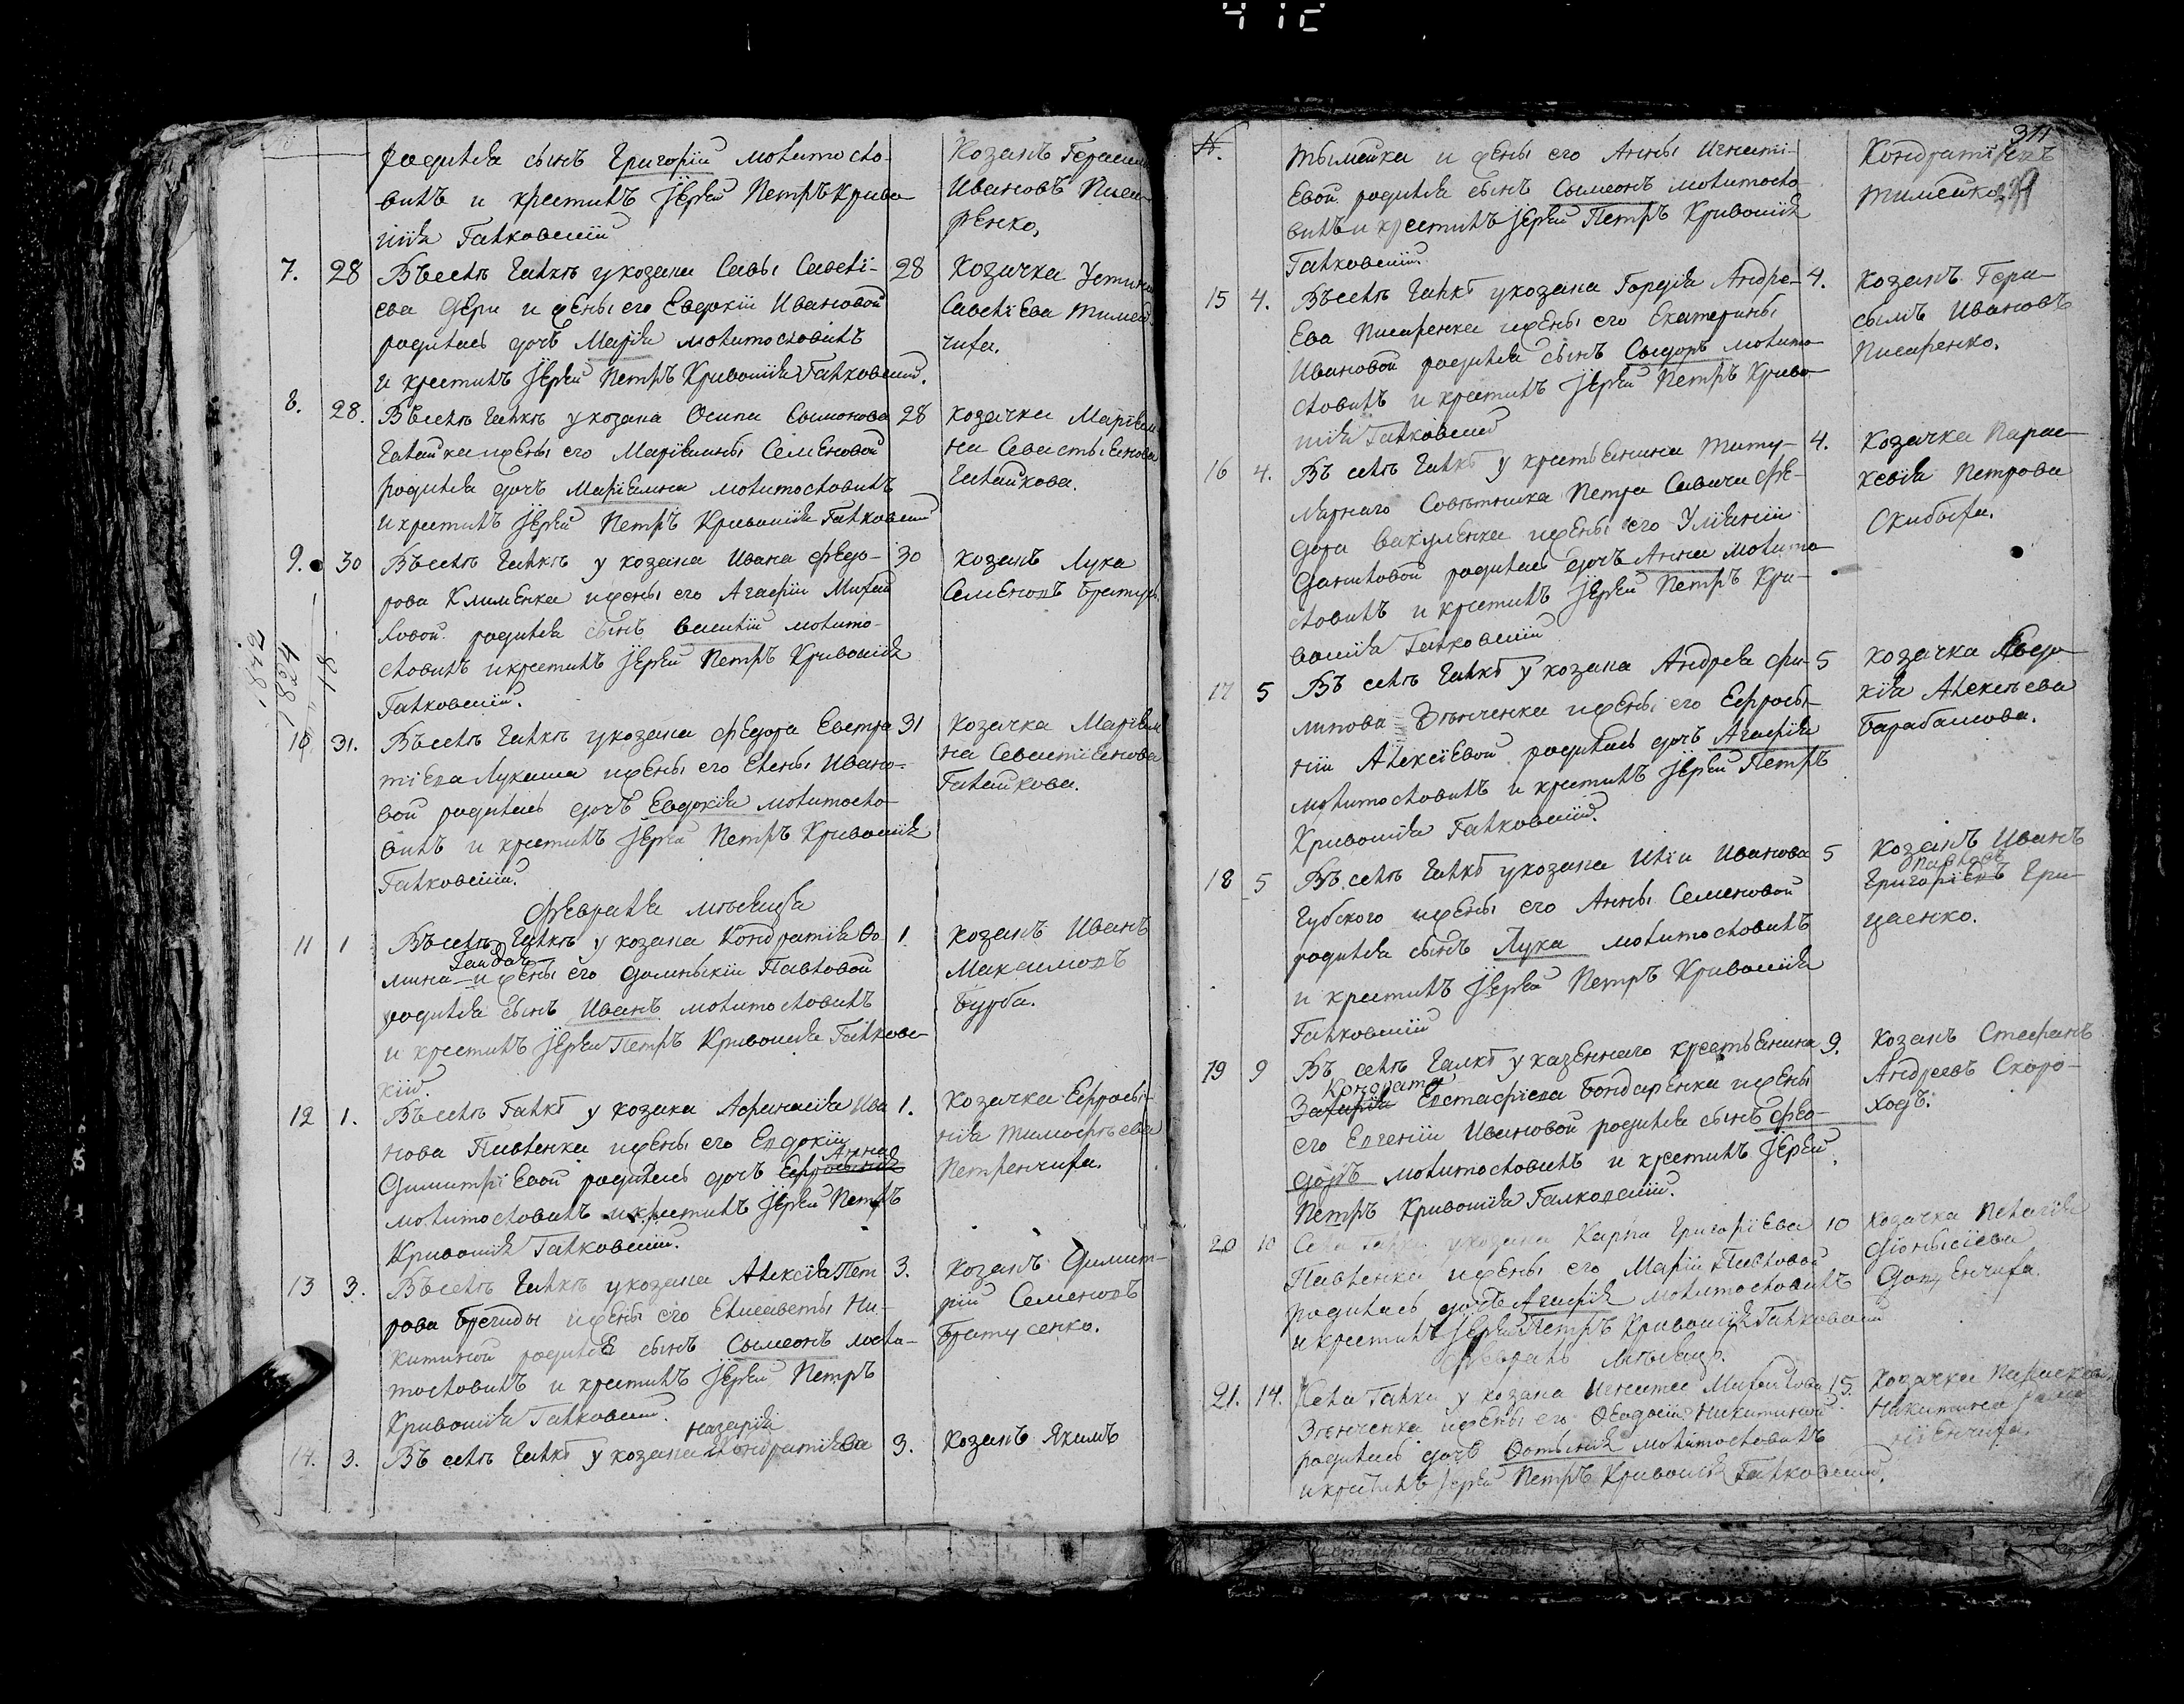 родился сынъ Григорій молитвосло-
вилъ и крестилъ Іерей Петръ Криво
шія Галковскій
Козакъ Герасим
Ивановъ Писа
ренко,
7. 28 Въ селѣ Галкѣ у козака Савы Савелі-
ева Дери и жены его Евдокіи Ивановой
родилась дочь Марія молитвословилъ
и крестилъ Іерей Петръ Кривошія Галковскій.
28 Козачка Устин
Савелѣева Тимей
чиха.
8. 28. Въ селѣ Галкѣ у козака Осипа Сымонова
Галашка и жены его Маріанны Семеновой
родилса дочъ Маріанна молитвословилъ
и крестилъ Іерей Петръ Кривошія Галковскій
28 козачка Маріан
на Севастьянова
Галашкова.
9. 30 Въ селѣ Галкѣ у козака Ивана Федо-
рова Клименка и жены его Агафіи Михай
ловой родился сынъ Василій молитво-
словилъ и крестилъ Іерей Петръ Кривошія
Галковскій.
30 козакъ Лука
Семеновъ Братусь
1842
1824
18
10 31. Въ селѣ Галкѣ у козака Федора Евстра
тіева Лукаша и жены его Елены Ивано-
вой родилась дочъ Евдокія молитвосло-
вилъ и крестилъ Іерей Петръ Кривошія
Галковскій.
31 козачка Маріан
на Севастіанова
Галашкова.
Февраля мѣсяца
11 1 Въ селѣ Галкѣ у козака Кондратія Ѳо
Гайдач
мина и жены его Домныкіи Павловой
родился сынъ Иванъ молитвословилъ
и крестилъ Іерей Петръ Кривошія Галковс
кій.
1. козакъ Иванъ
Максимовъ
Бурба.
12 1. Въ селѣ Галкѣ у козака Афанасія Ива
нова Павленка и жены его Евдокіи
Анна
Димитріевой родилась дочъ Ефросинія
молитвословилъ и крестилъ Іерей Петръ
Кривошія Галковскій.
1. Козачка Ефросы-
нія Тимофѣева
Петренчиха.
13 3. Въ селѣ Галкѣ у козака Алексія Пет
рова Брегиды и жены его Елисаветы Ни-
китиной родился сынъ Сымеонъ моли-
твословилъ и крестилъ Іерей Петръ
Кривошія Галковскій.
3. козакъ Димит-
рій Семеновъ
Братусенко.
Назарія
14. 3. Въ селѣ Галкѣ у козака Кондратіева
3. Козакъ Якимъ
311
Тымейка и жены его Анны Игнаті-
евой родился сынъ Сымеонъ молитвосло
вилъ и крестилъ Іерей Петръ Кривошія
Галковскій.
Кондратіевъ
Тимейко
15 4. Въ селѣ Галкѣ у козака Гордія Андре-
ева Писаренка и жены его Екатерины
Ивановой родился сынъ Сыдоръ молитво
словилъ и крестилъ Іерей Петръ Криво
шія Галковскій
4. козакъ Гера-
сымъ Ивановъ
Писаренко.
16 4. Въ селѣ Галкѣ у крестьянина Титу-
лярнаго Совѣтника Петра Савича Фе-
дора Вакуленка и жены его Уліаніи
Даниловой родилась дочъ Анна молитво
словилъ и крестилъ Іерей Петръ Кри-
вошія Галковскій
4. козачка Парас
кевія Петрова
Скибыха.
17 5 Въ селѣ Галкѣ у козака Андрея Фи-
липова Зѣнченка и жены его Ефросы-
ніи Алексіевой родилась дочъ Агафія
молитвословилъ и крестилъ Іерей Петръ
Кривошія Галковскій.
5 козачка Евдо
кія Алексѣева
Барабашова.
18 5 Въ селѣ Галкѣ у козака Иліи Иванова
Губского и жены его Анны Семеновой
родился сынъ Лука молитвословилъ
и крестилъ Іерей Петръ Кривошія
Галковскій
5 козакъ Иванъ
Павлов
Григоріевъ Гри
цаенко.
19 9 Въ селѣ Галкѣ у казеннаго крестьянина
Кондрата
Захарія Евстафіева Бондаренка и жены
его Евгеніи Ивановой родился сынъ Фео-
доръ молитвословилъ и крестилъ Іерей
Петръ Кривошія Галковскій.
9. козакъ Стефанъ
Андреевъ Скоро-
ходъ.
20 10 Села Галки у козака Карпа Григоріева
Павленка и жены его Маріи Павловой
родилась дочъ Агафія молитвословилъ
и крестилъ Іерей Петръ Кривошія Галковскій
10 козачка Пелагія
Діонысіева
Февраль мѣсяцъ.
21. 14. Села Галки у козака Игнатія Михайлова
Зѣнченка и жены его Ѳеодосіи Никитиной
родилась дочъ Фотынія молитвословилъ
и крестилъ Іерей Петръ Кривошія Галковскій.
15. козачка Параскевія
Никитина